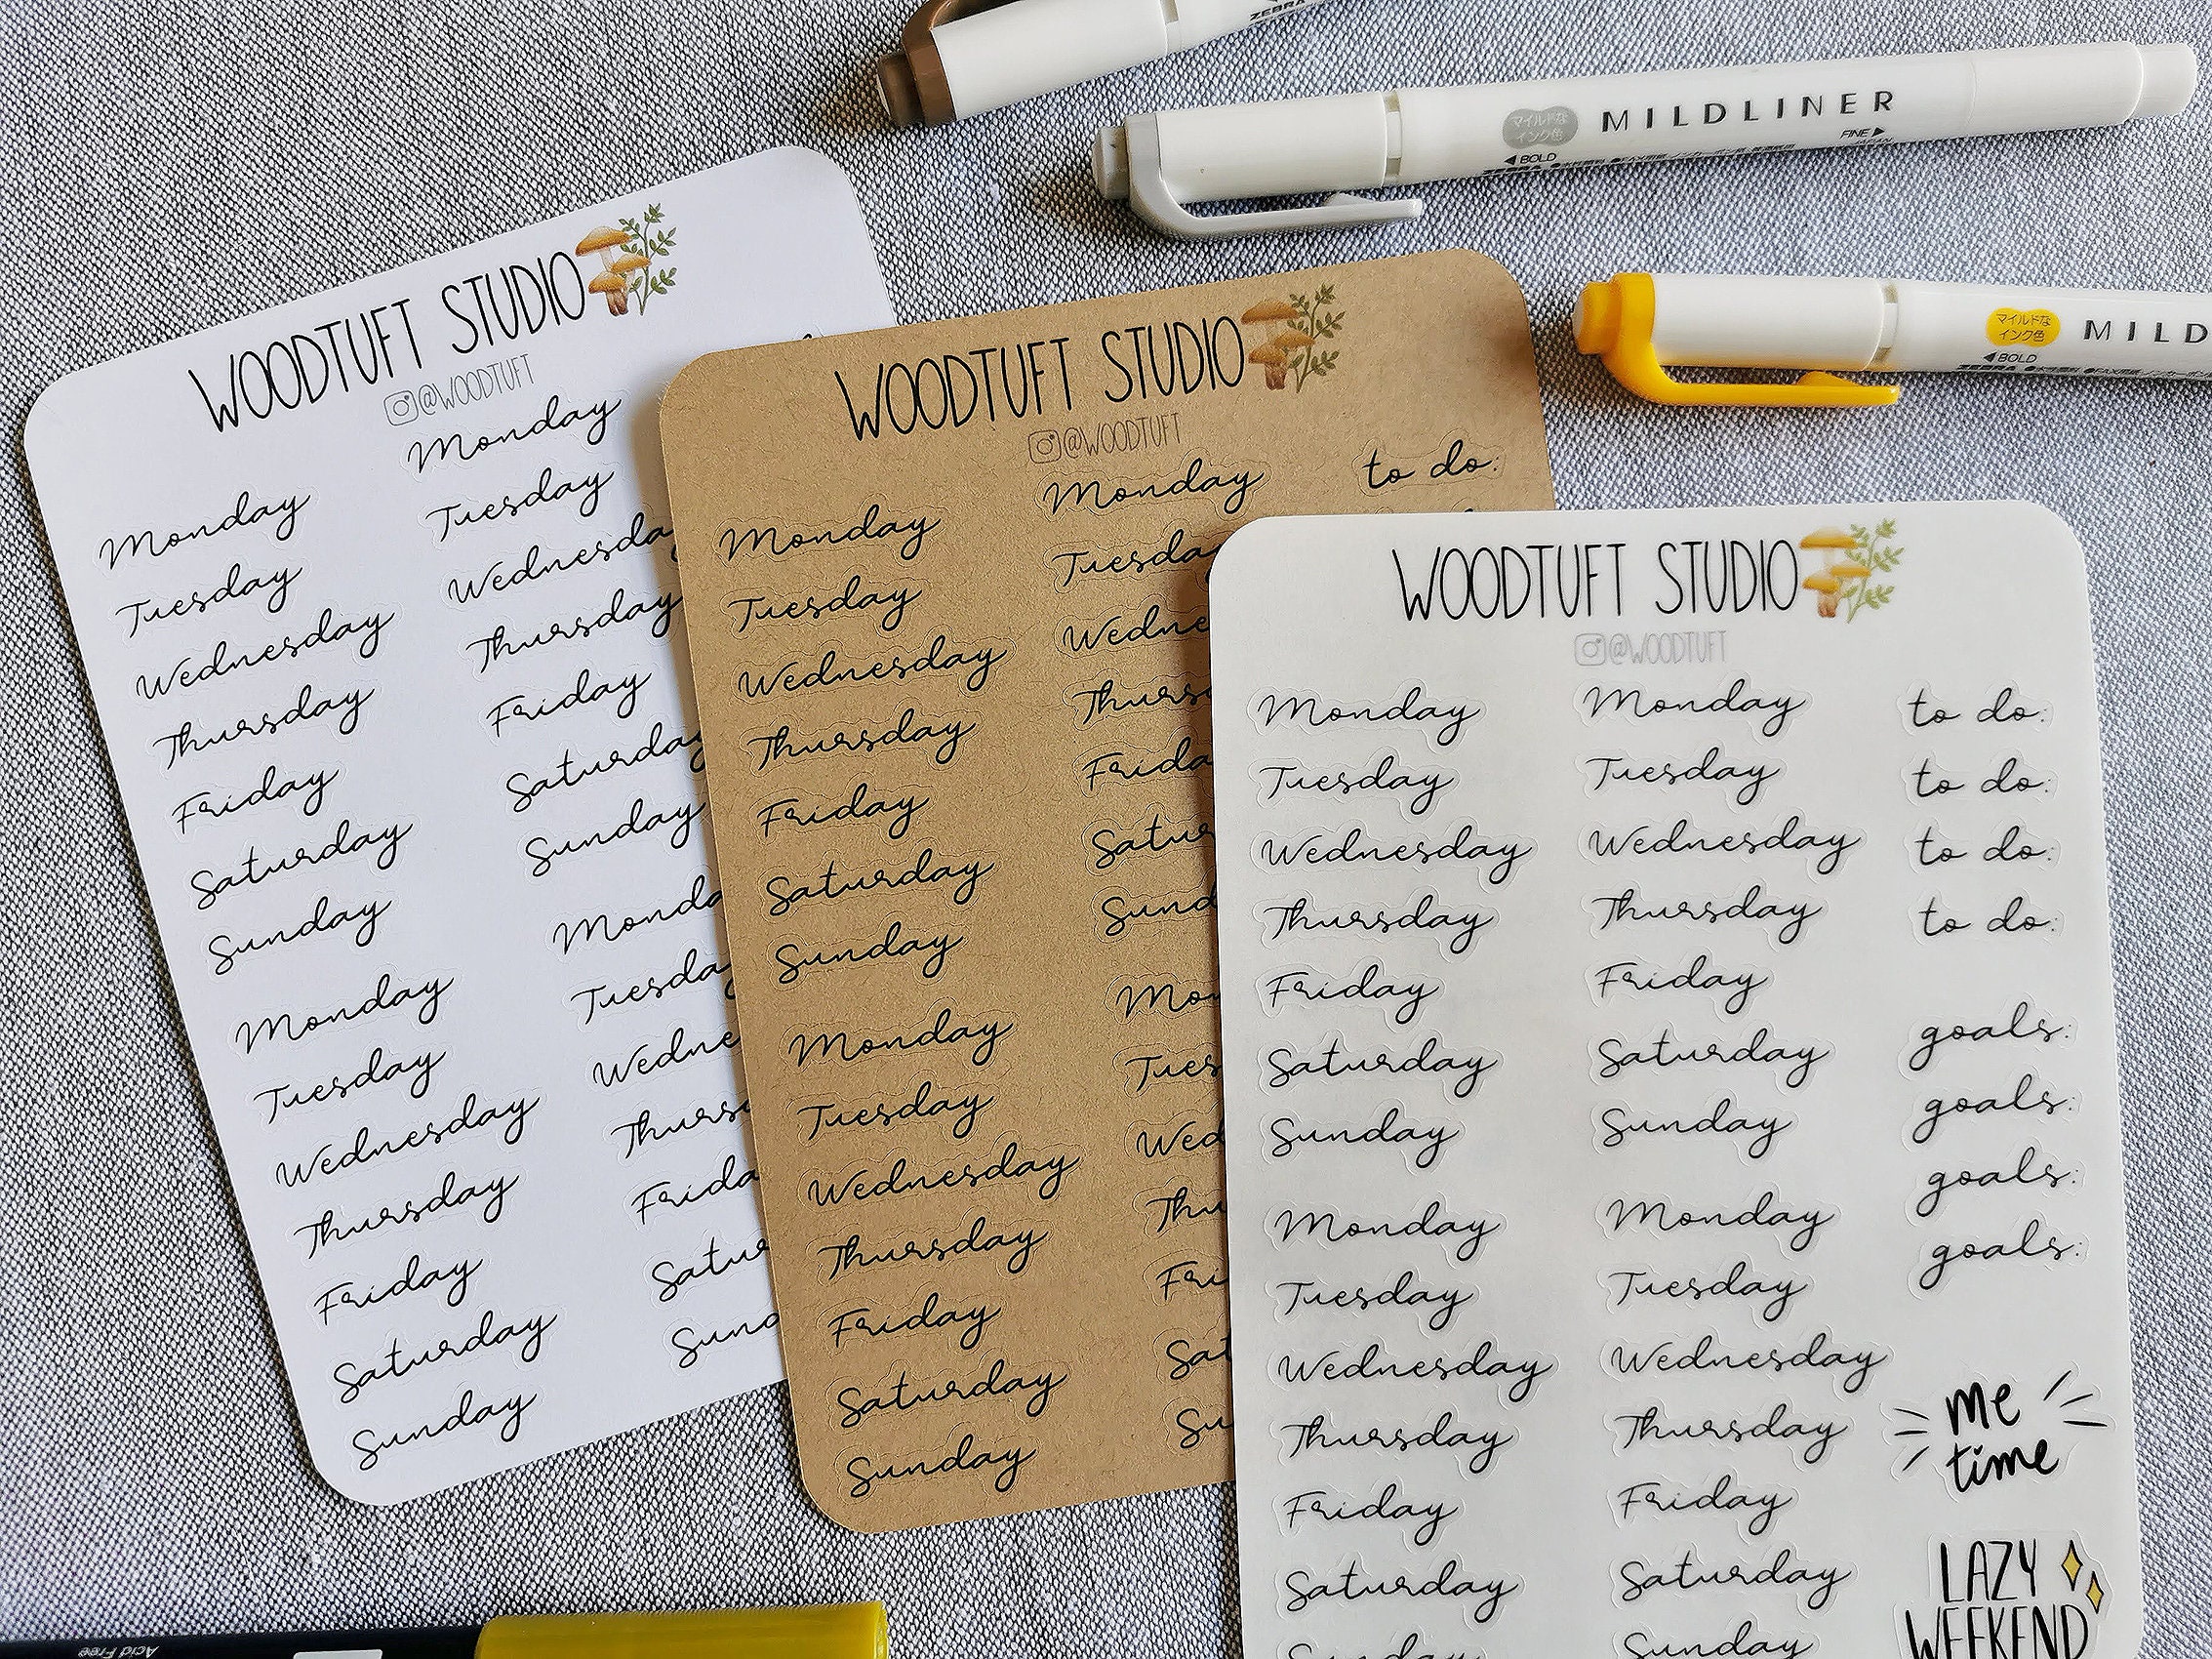 ZEBRA
マイルドな
インク色
MILDLINER
◀BOLD
FINE▶
ZEBRA
マイルドな
インク色
MILD
◀BOLD
ZEBRA
WOODTUFT STUDIO
@WOODTUFT
Monday
Tuesday
Wednesday
Thursday
Friday
Saturday
Sunday
Monday
Tuesday
Wednesday
Thursday
Friday
Saturday
Sunday
Monday
Tuesday
Wednesday
Thursday
Friday
Saturday
Sunday
Monda
Tuesda
Wedne
Thurs
Frida
Satur
Sund
WOODTUFT STUDIO
@WOODTUFT
Monday
Tuesday
Wednesday
Thursday
Friday
Saturday
Sunday
Monday
Tuesday
Wednesday
Thursday
Friday
Saturday
Sunday
Monday
Tuesda
Wedne
Thurs
Frida
Satur
Sund
Mon
Tues
Wed
Thu
Fri
Sat
Su
to do:
WOODTUFT STUDIO
@WOODTUFT
Monday
Tuesday
Wednesday
Thursday
Friday
Saturday
Sunday
Monday
Tuesday
Wednesday
Thursday
Friday
Saturday
Sunday
Monday
Tuesday
Wednesday
Thursday
Friday
Saturday
Sunday
Monday
Tuesday
Wednesday
Thursday
Friday
Saturday
Sunday
to do:
to do:
to do:
to do:
goals:
goals:
goals:
goals:
me
time
LAZY
WEEKEND
Acid Free